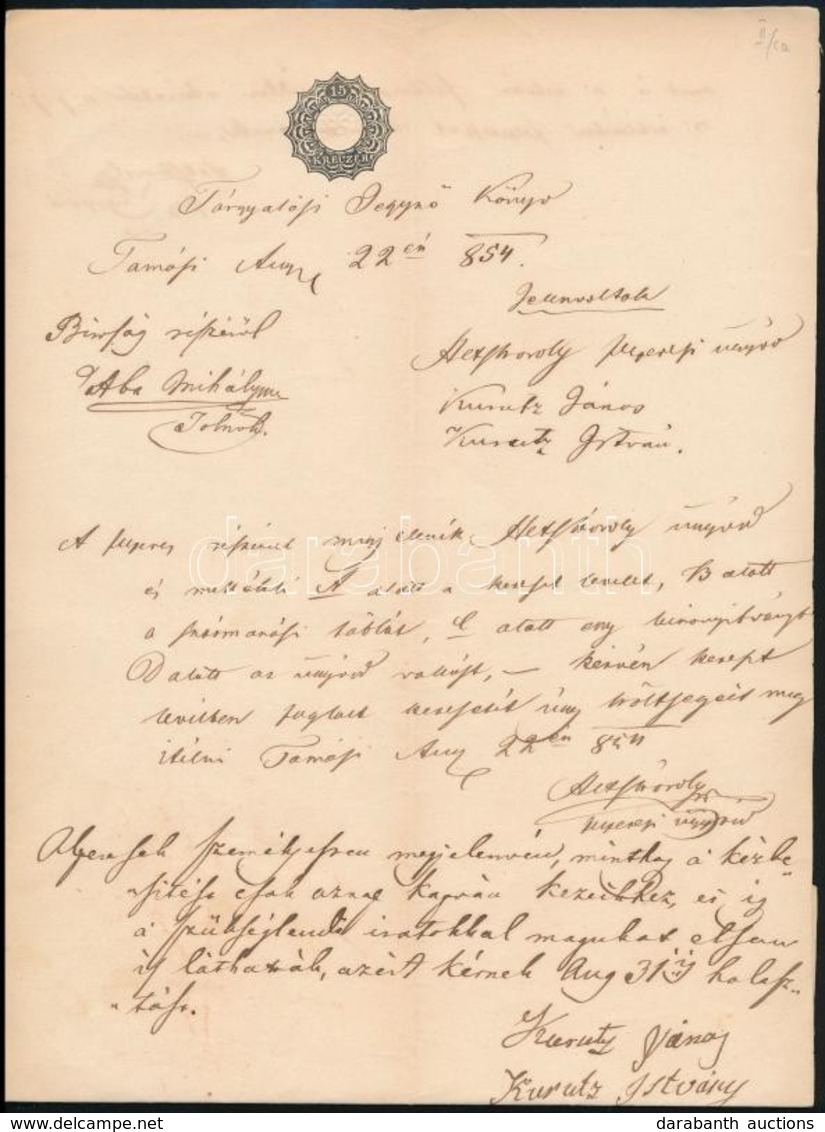 II/12
15
KREUZER
Tárgyalási Jegyző Könyv
Tamási Aug 22én 854.
Jelenvoltak
Biróság részéröl
Aba Mihály
Tolnok.
Hets Károly felperesi ügyvéd
Kurutz János
Kurutz István.
A felperes részéröl megjelenik Hets Károly ügyvéd
és mellékli A alatt a kereset levelet, B alatt
a származási táblát, C alatt egy bizonyitványt
D alatt az ügyvéd vallást, – kérvén kereset
levélben foglalt keresetét úgy költségeit meg
itélni Tamási Aug 22én 854
Hets Károly
felperesi ügyvéd
Alperesek személyessen megjelenvén, minthogy a kézbe
sitést csak aznap kapván kezeikhez, és igy
a szükséglendő iratokkal magukat ellen
is láthatták, azért kérnek Aug 31ig halasz
tást.
Kurutz János
Kurutz Istvány
darabanth
darabanth auctions